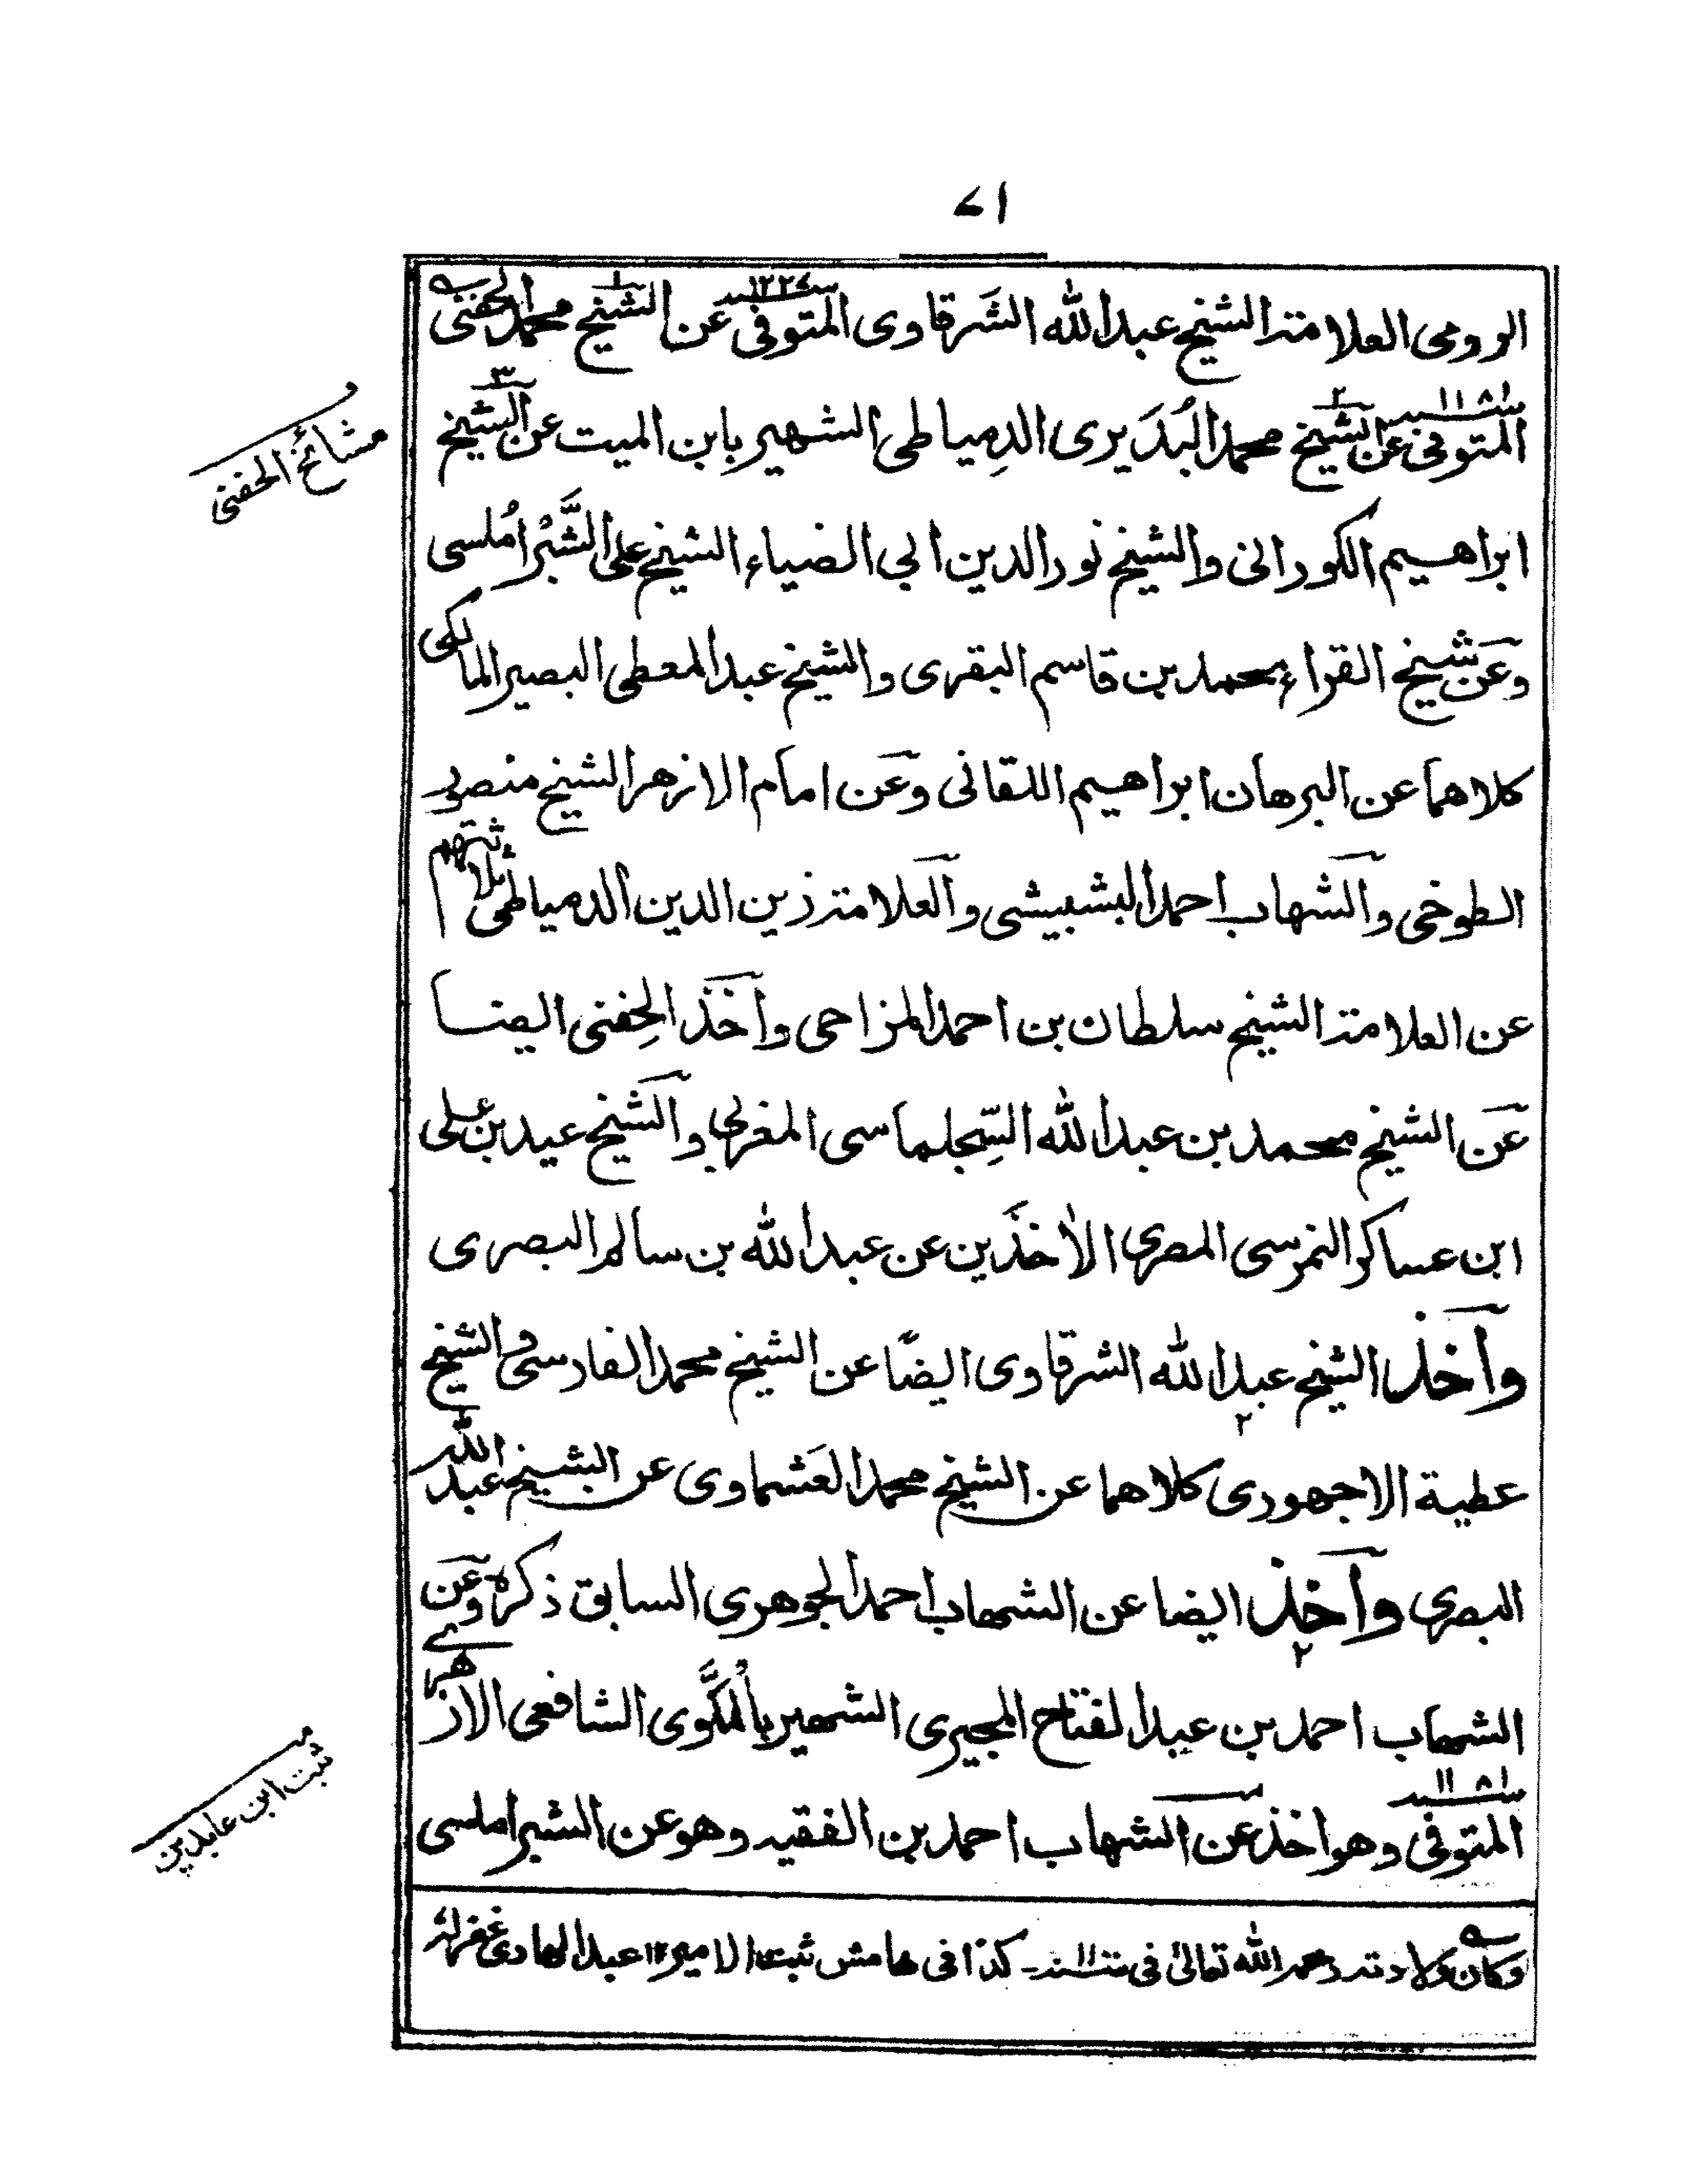 ١٧
الرومى العلامة الشيخ عبد الله الشَرقاوى المتوفى سنة ١٢٢٧ عن الشيخ محمد الحفنى
المتوفى سنة ١١٨١ عن الشيخ محمد البُدَيرى الدِمياطى الشهير بابن الميت عن الشيخ
ابراهيم الكورانى والشيخ نور الدين ابي الضياء الشيخ على الشَّبْرامُلسى
وعن شيخ القراء محمد بن قاسم البقرى والشيخ عبد المعطى البصير المالكى
كلاهما عن البرهان ابراهيم اللقانى وعن امام الازهر الشيخ منصور
الطوخى والشهاب احمد البشبيشى والعلامة زين الدين الدمياطى ثلاثتهم
عن العلامة الشيخ سلطان بن احمد المزاحى وأخذ الحِفنى ايضا
عن الشيخ محمد بن عبد الله السِّجلماسى المغربي والشيخ عيد بن على
ابن عساكر النمرسى المصرى الأخذين عن عبد الله بن سالم البصرى
وأخذ الشيخ عبد الله الشرقاوى ايضًا عن الشيخ محمد الفارسى والشيخ
عطية الاجهورى كلاهما عن الشيخ محمد العَشماوى عن الشيخ عبد الله
البصرى وأخذ ايضا عن الشهاب احمد الجوهرى السابق ذكره وعن
الشهاب احمد بن عبد الفتاح المجيرى الشهير بالمُلَّوى الشافعى الازهرى
المتوفى سنة ١١٨١ وهو اخذ عن الشهاب احمد بن الفقيه وهو عن الشبراملسى
وكان ولادته رحمه الله تعالىٰ فى سنة كذا فى هامش ثبت الامير ١٢ عبد الهادى غفر له
مشائخ الحفنى
ثبت ابن عابدين